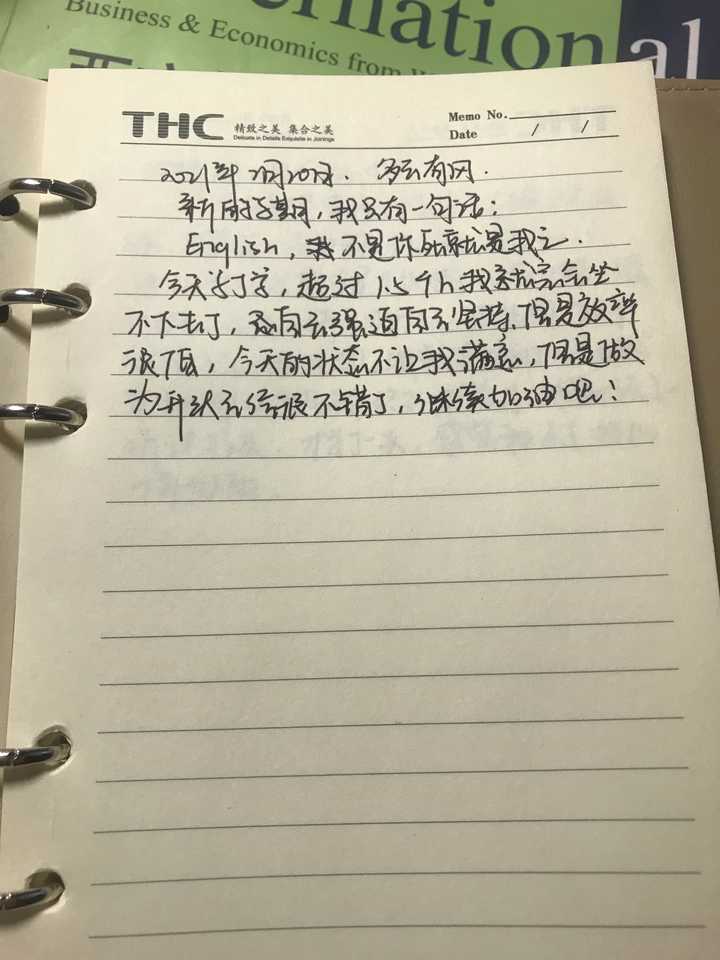 Business & Economics from
national
THC 精致之美 集合之美
Delicate in Details Exquisite in Joinings
Memo No.
Date / /
2021年 月20日. 多云有风.
新的学期,我只有一句话:
English, 不是你死就是我亡.
今天学了, 超过1.5个h我就会坐
不下去了, 强迫自己坚持. 但是效率
很低, 今天的状态不让我满意, 但是做
为开头已经很不错了, 继续加油吧!